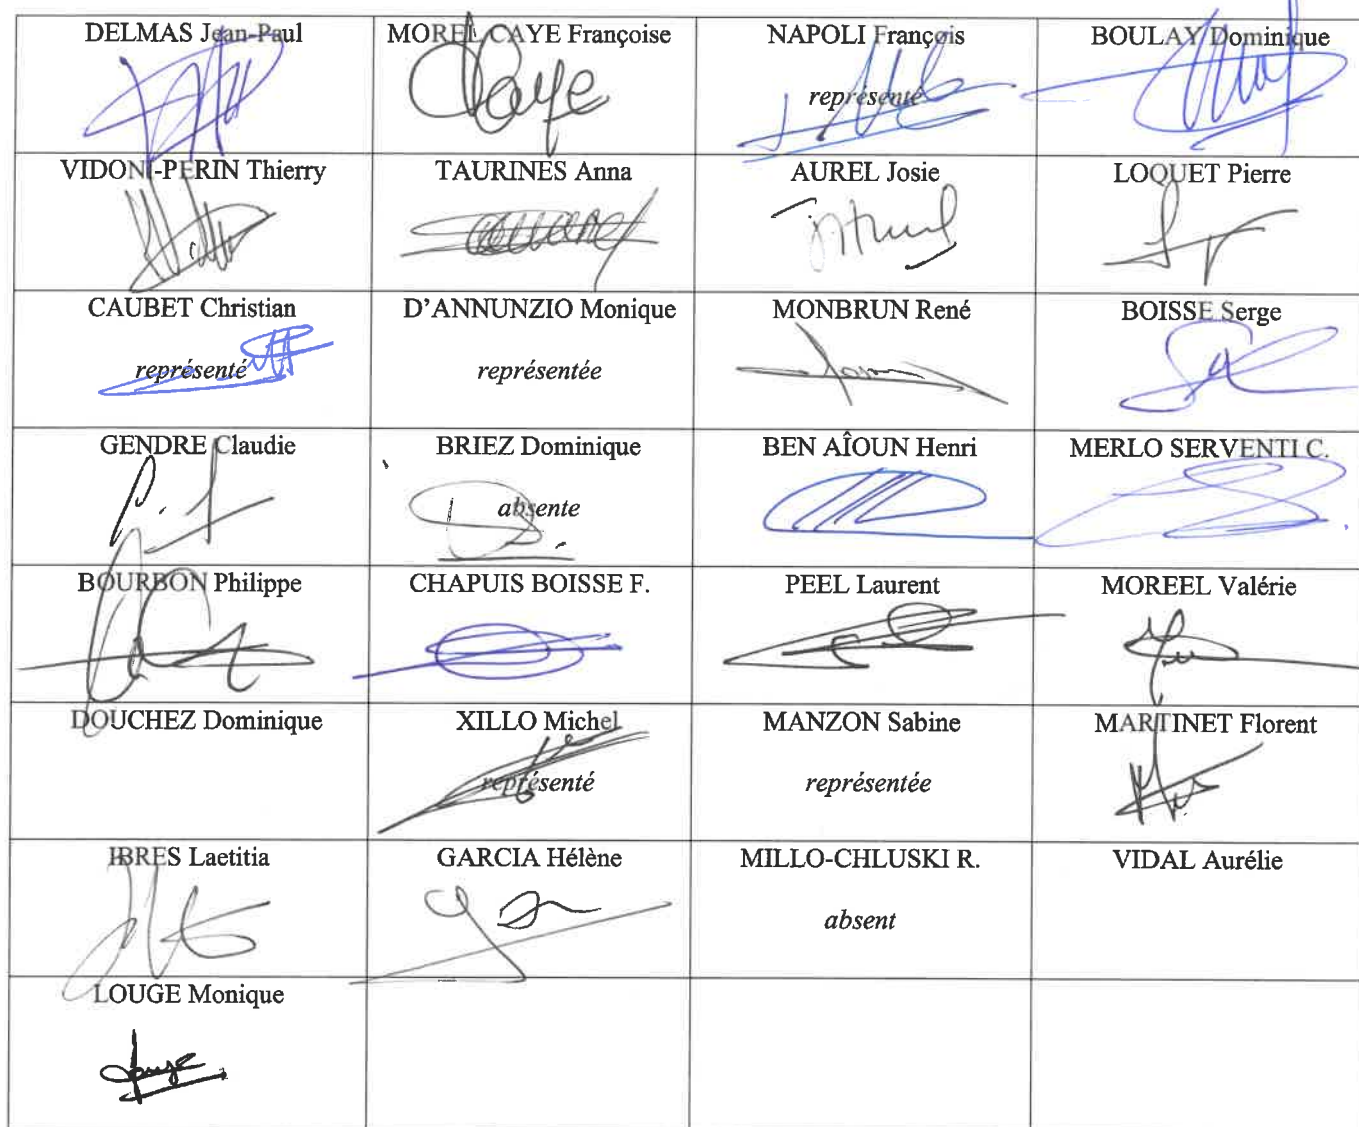 DELMAS Jean-Paul
MOREL CAYE Françoise
NAPOLI François
représenté
BOULAY Dominique
Caye
VIDONI-PERIN Thierry
TAURINES Anna
AUREL Josie
LOQUET Pierre
CAUBET Christian
représenté
D'ANNUNZIO Monique
représentée
MONBRUN René
BOISSE Serge
GENDRE Claudie
BRIEZ Dominique
absente
BEN AÎOUN Henri
MERLO SERVENTI C.
BOURBON Philippe
CHAPUIS BOISSE F.
PEEL Laurent
MOREEL Valérie
DOUCHEZ Dominique
XILLO Michel
représenté
MANZON Sabine
représentée
MARTINET Florent
IBRES Laetitia
GARCIA Hélène
MILLO-CHLUSKI R.
absent
VIDAL Aurélie
LOUGE Monique
Louge